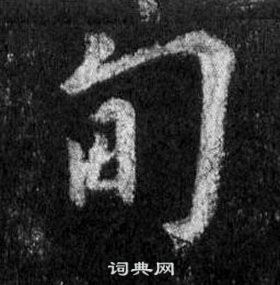 旬
词典网